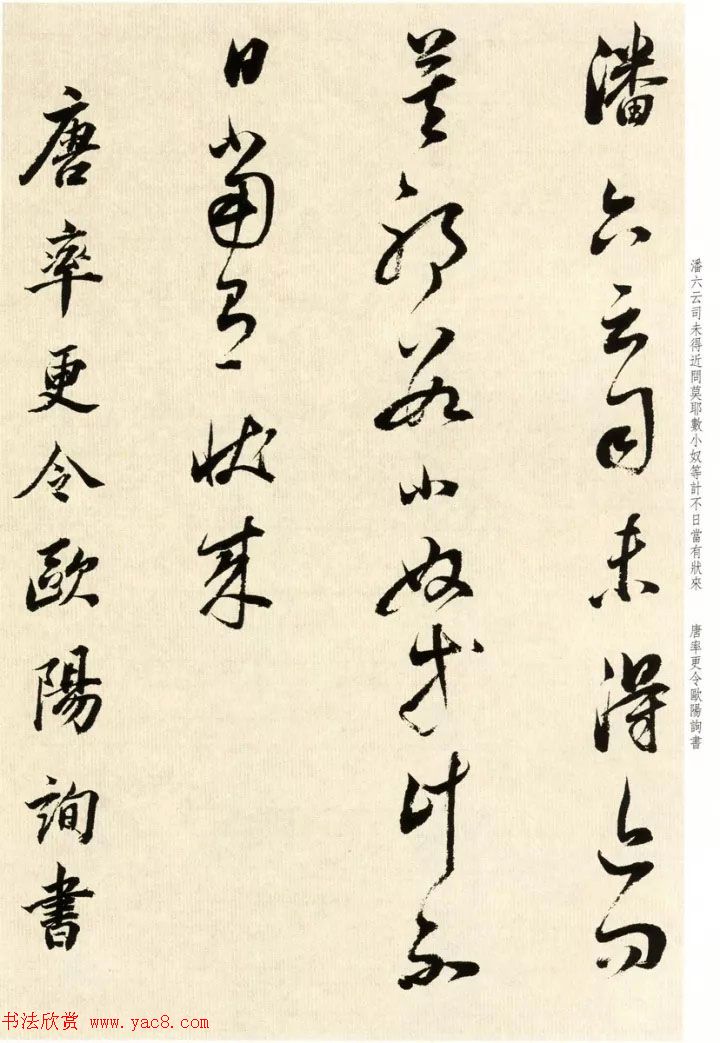 潘六云司未得近問莫耶數小奴等計不日當有狀來　唐率更令歐陽詢書
潘六云司未得近問
莫耶數小奴等計不
日當有狀來
唐率更令歐陽詢書
书法欣赏 www.yac8.com